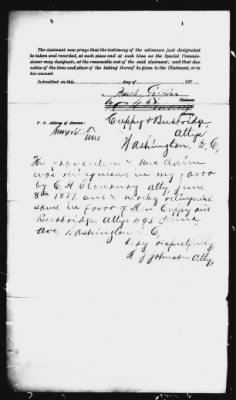 The claimant now prays that the testimony of the witnesses just designated
be taken and recorded, at such place and at such time as the Special Commis-
sioner may designate, at the reasonable cost of the said claimant; and that due
notice of the time and place of the taking thereof be given to the Claimant, or to
his counsel.
Submitted on this day of 187
Claimant.
By
Attorney.
P. O. Address of Attorney:
Cuppy & Burbridge
Attys
Washington, D. C.
The prosecution of this claim
was relinquished in my favor
by E. H. Flournoy atty, June
8th 1877 and I hereby relinquish
same in favor of Cuppy and
Burbridge Attys 495
Ave, Washington D. C.
Very respectfully,
Johnson Atty,